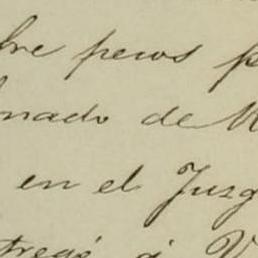 bre pesos p
nado de M
en el Juzg
tregé á V